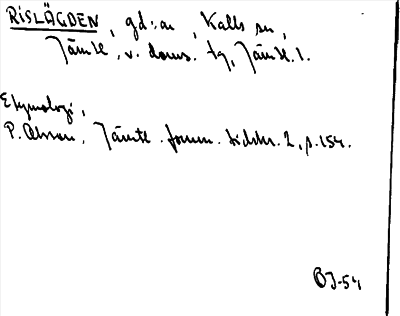 RISLÄGDEN, gd:ar, Kalls sn,
Jämtl, v. doms. tg, Jämtl. l.
Etymologi,
P. Olsson, Jämtl. fornm. tidskr. 2, p. 154.
BJ-54